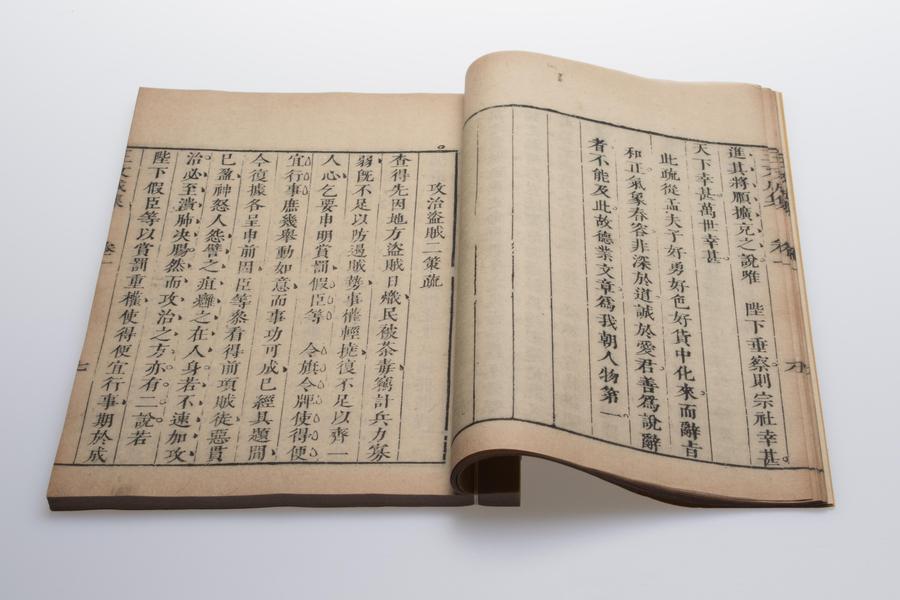 進其將順擴充之說唯　陛下垂察則宗社幸甚
天下幸甚萬世幸甚
此疏從孟夫子好勇好色好貨中化來而辭旨
和正氣象春容非深於道誠於愛君善爲說辭
者不能及此故德業文章爲我朝人物第一
攻治盜賊二策疏
查得先因地方盜賊日熾民被荼毒竊計兵力寡
弱旣不足以防遏賊勢事權輕撓復不足以齊一
人心乞要申明賞罰假臣等　令旗令牌使得便
宜行事庶幾舉動如意而事功可成已經具題間
今復據各呈申前因臣等叅看得前項賊徒惡貫
已盈神怒人怨譬之疽癰之在人身若不速加攻
治必至潰肺决腸然而攻治之方亦有二說若
陛下假臣等以賞罰重權使得便宜行事期於成
卷一
七